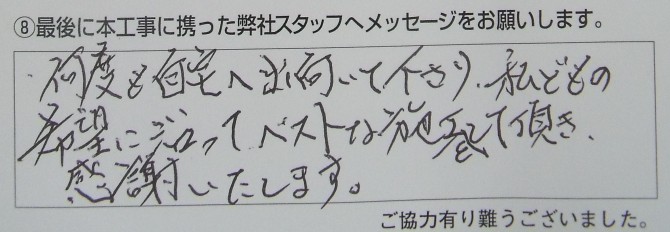 ⑧最後に本工事に携った弊社スタッフへメッセージをお願いします。
何度も自宅へ出向いて下さり、私どもの
希望に沿ってベストな施工をして頂き、
感謝いたします。
ご協力有り難うございました。